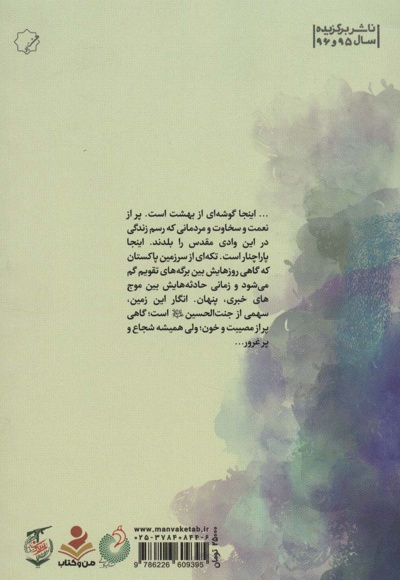 ناشر برگزیده
سال ۹۵ و ۹۶
... اینجا گوشه‌ای از بهشت است. پر از
نعمت و سخاوت و مردمانی که رسم زندگی
در این وادی مقدس را بلدند. اینجا
پاراچنار است. تکه‌ای از سرزمین پاکستان
که گاهی روزهایش بین برگه‌های تقویم گم
می‌شود و زمانی حادثه‌هایش بین موج
های خبری، پنهان. انگار این زمین،
سهمی از جنت‌الحسین است؛ گاهی
پر از مصیبت و خون؛ ولی همیشه شجاع و
پر غرور...
www.manvaketab.ir
۰۲۵-۳۷۸۴۰۸۴۴-۶
۲۵۰۰۰ تومان
9 786226 609395
من و کتاب